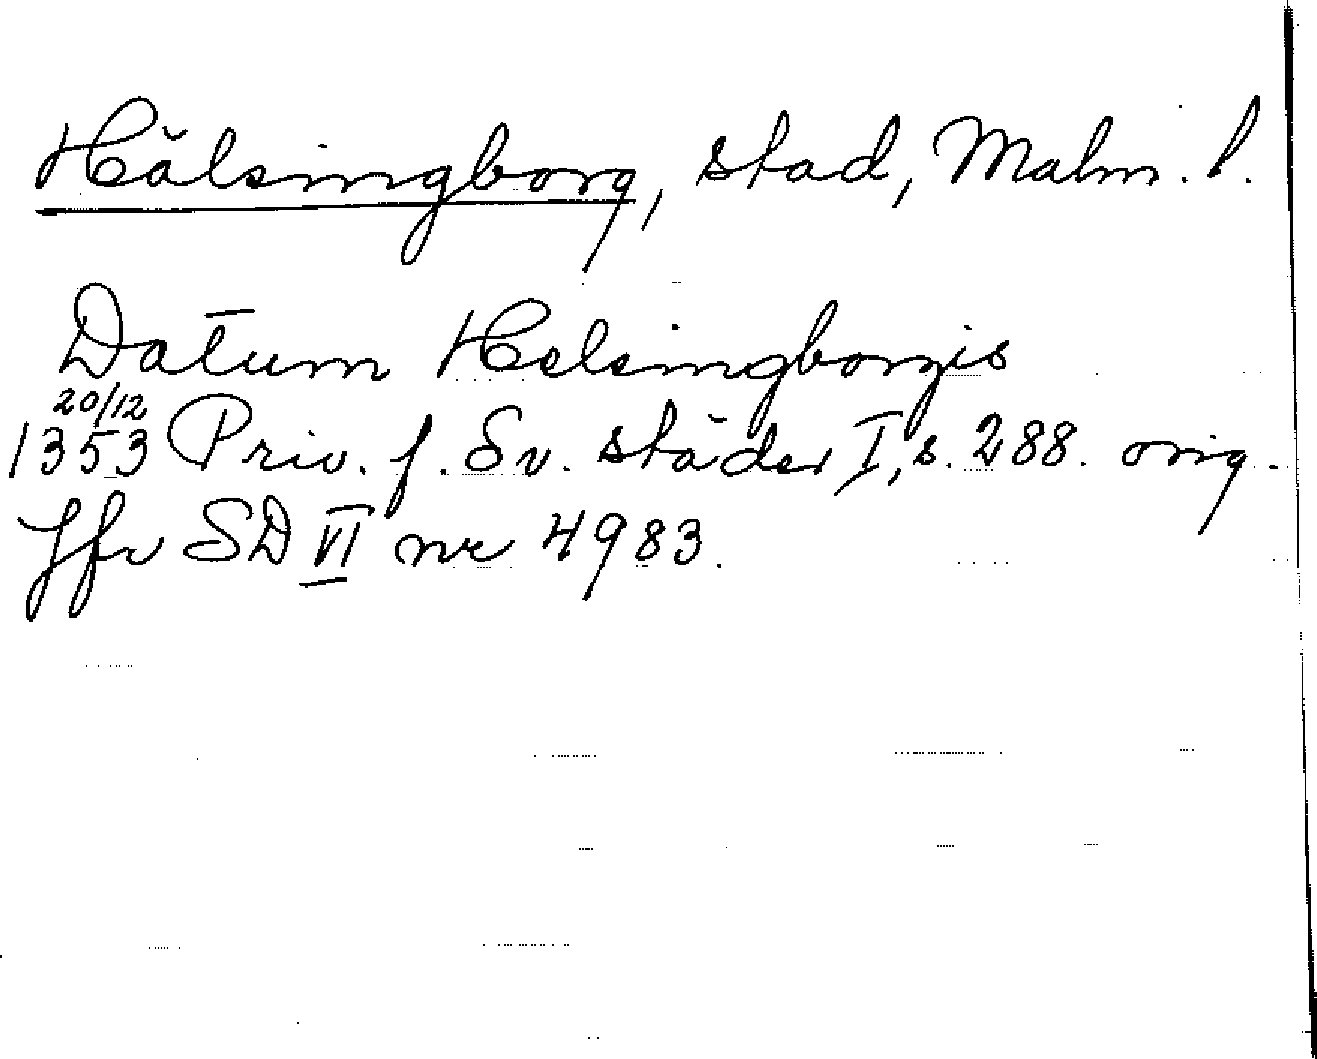 Hälsingborg, stad, Malm. l.
Datum Helsingborgis
20/12
1353 Priv. f. Sv. städer I, s. 288. orig.
Jfr SD VI nr 4983.